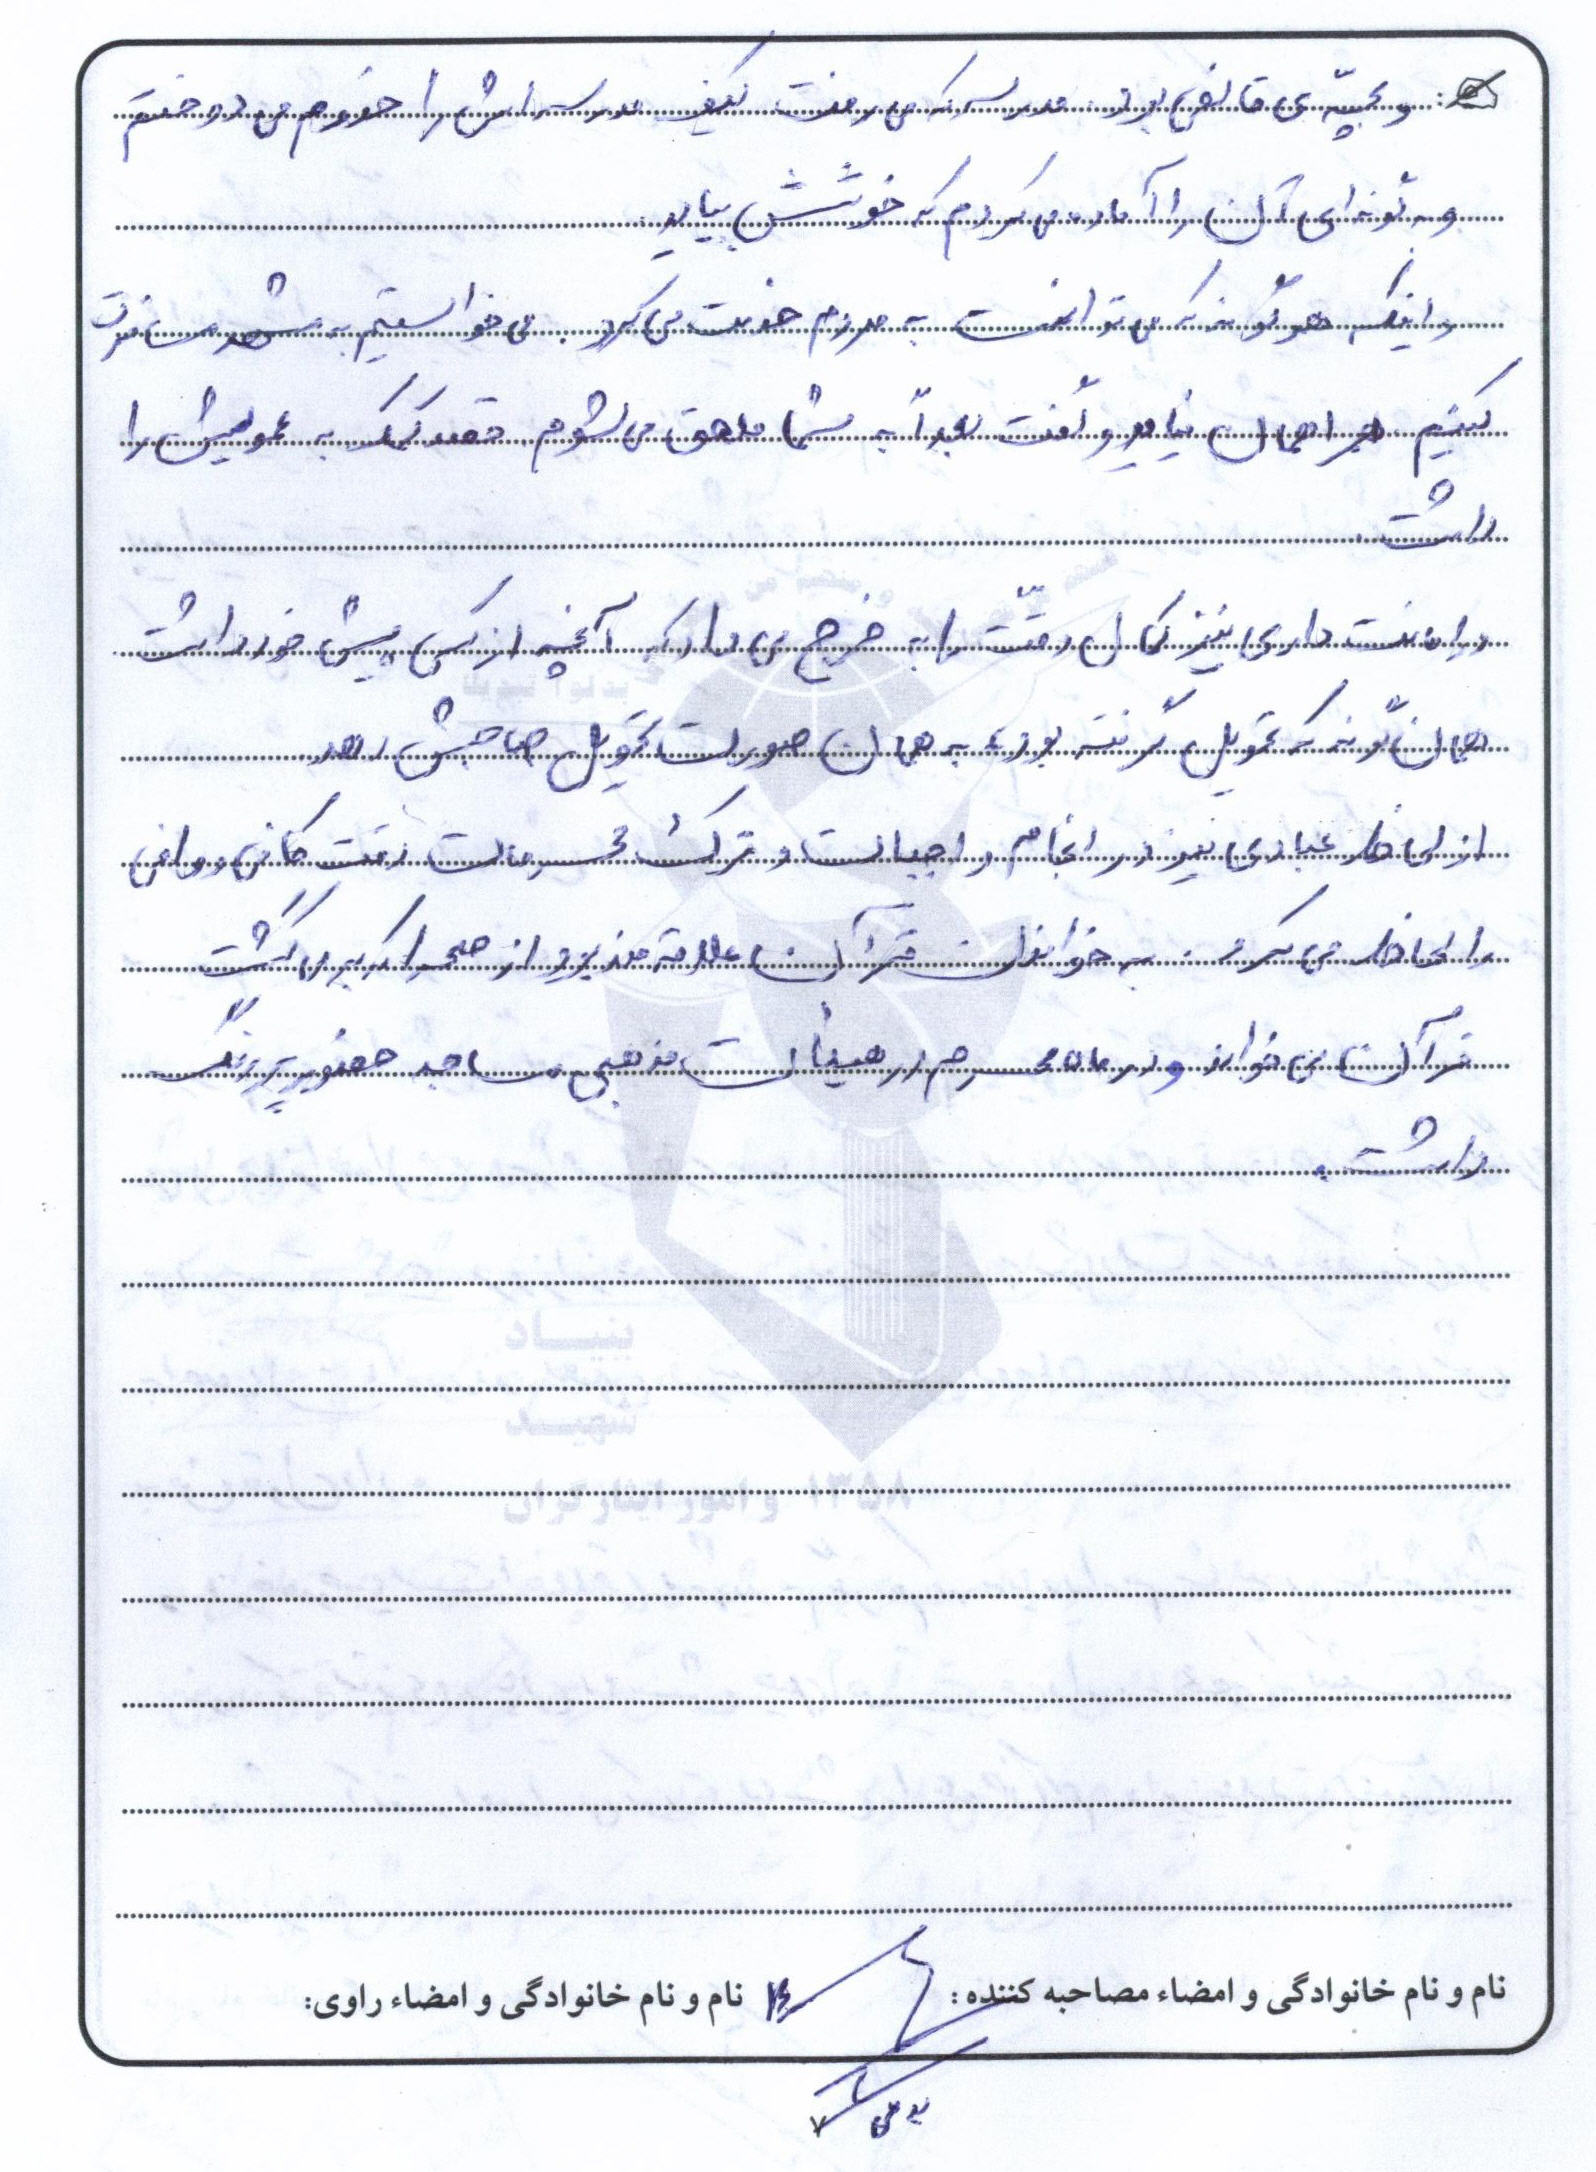 و بچه‌ی قانعی بود. مدرسه که می رفت کیف مدرسه‌اش را خودم می دوختم
و به گونه‌ای آن را آماده می کردم که خوشش بیاید.
و اینکه هر گونه که می توانست به مردم خدمت می کرد. می خواستیم به مشهد مسافرت
کنیم همراهمان نیامد و گفت بعداً به شما ملحق می شوم. قصد کمک به عمویش را
داشت.
در امانت داری نیز کمال دقّت را به خرج می داد که آنچه از کسی پیش خود داشت
همان گونه که تحویل گرفته بود، به همان صورت تحویل صاحبش دهد.
از لحاظ عبادی نیز در انجام واجبات و ترک محرمات دقت کافی و وافی
را لحاظ می کرد. به خواندن قرآن علاقه مند بود از صحرا که بر می گشت
قرآن می خواند و در ماه محرم در هیئات مذهبی و مساجد حضور پر رنگ
داشت.
بنیاد
شهید
۱۳۵۸ و امور ایثارگران
نام و نام خانوادگی و امضاء مصاحبه کننده: نام و نام خانوادگی و امضاء راوی:
۷